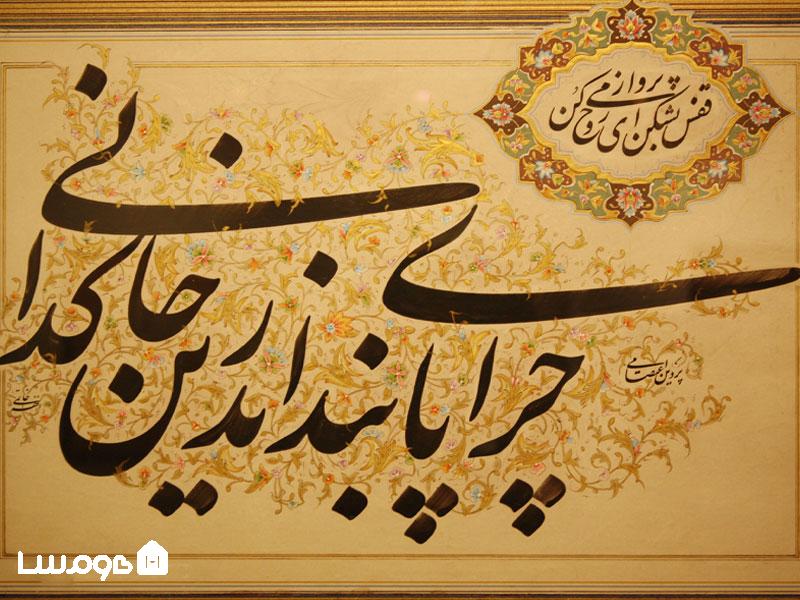 قفس بشکن ای روح پرواز می کن
چرا پای بند اندرین خاکدانی
پروین اعتصامی
هومسا